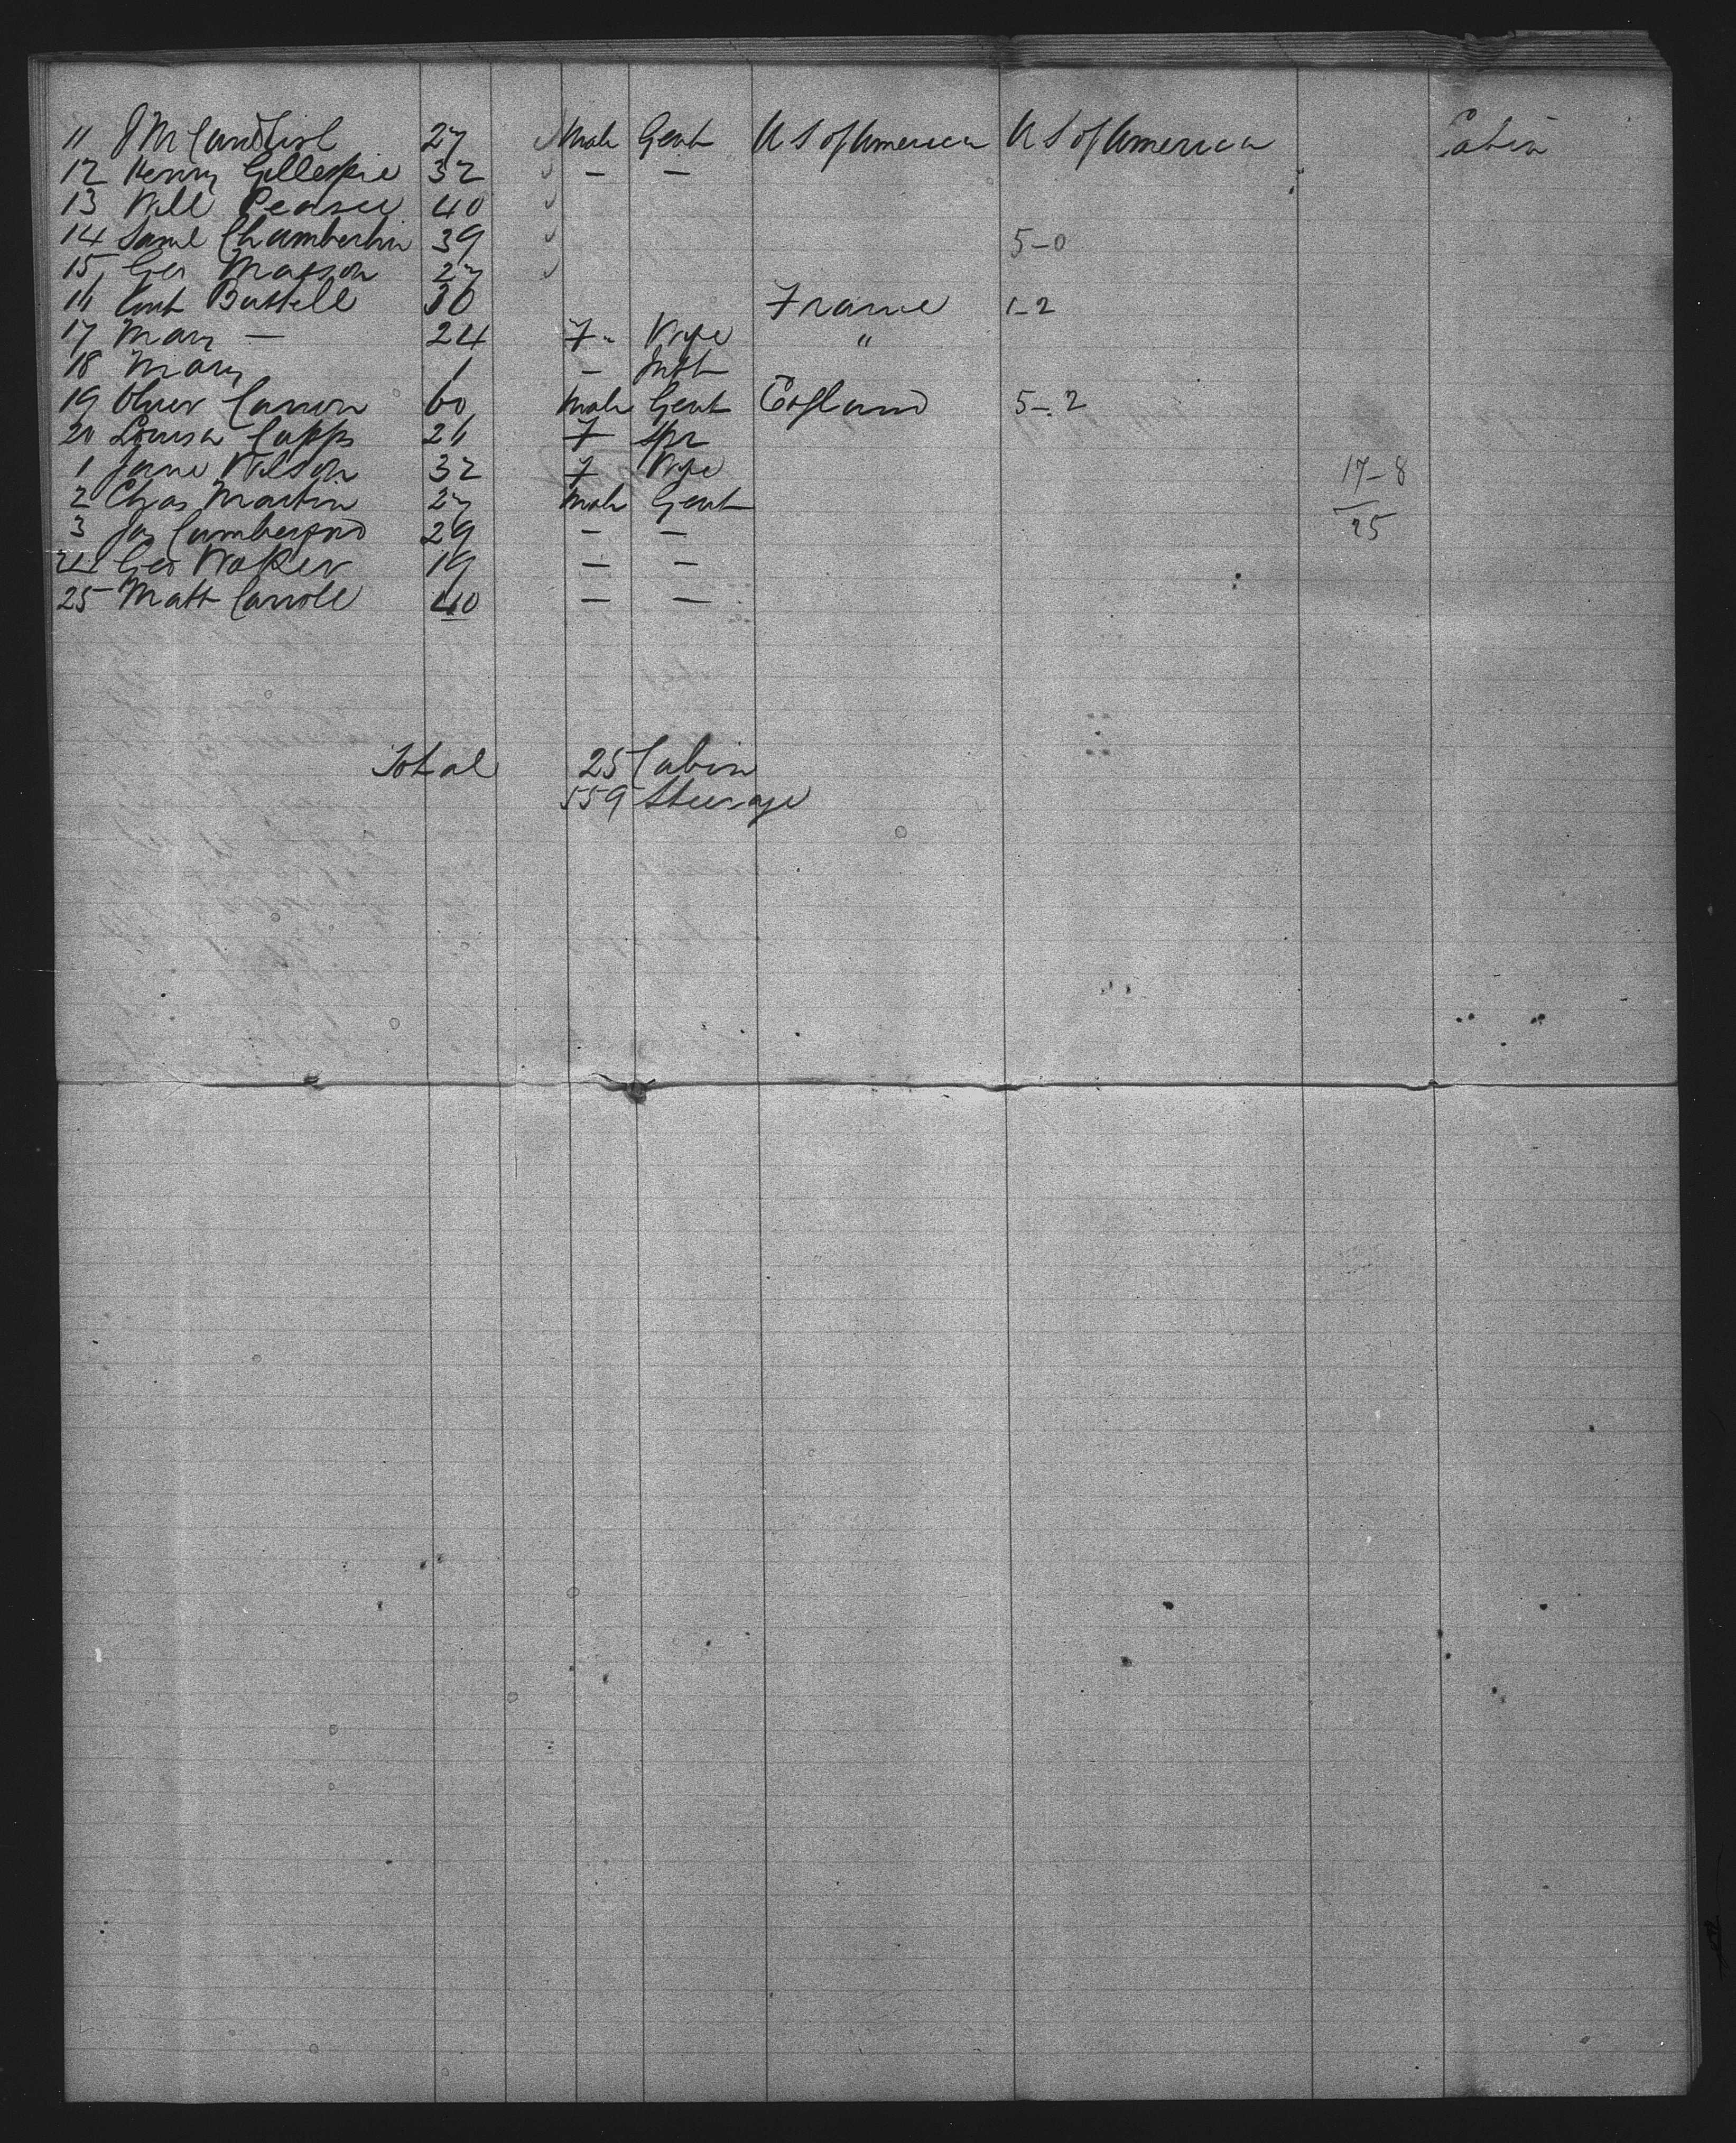 11 J McCandlish 27 Male Gent U S of America U S of America Cabin
12 Henry Gillespie 32 — —
13 Will Pearse 40
14 Saml Chamberlin 39 5-0
15 Geo Masson 27
16 Bussell 30 France 1-2
17 Mary — 24 F. Wife "
18 Mary 1 — Inft
19 Oliver Cannon 60 Male Gent England 5-2
20 Louisa Capps 26 F Spr
1 Jane Wilson 32 F Wife 17-8
2 Chas Martin 27 Male Gent 25
3 Jas Cumberford 29 — —
24 Geo Waker 19 — —
25 Matt Carroll 40 — —
Total 25 Cabin
559 Steerage